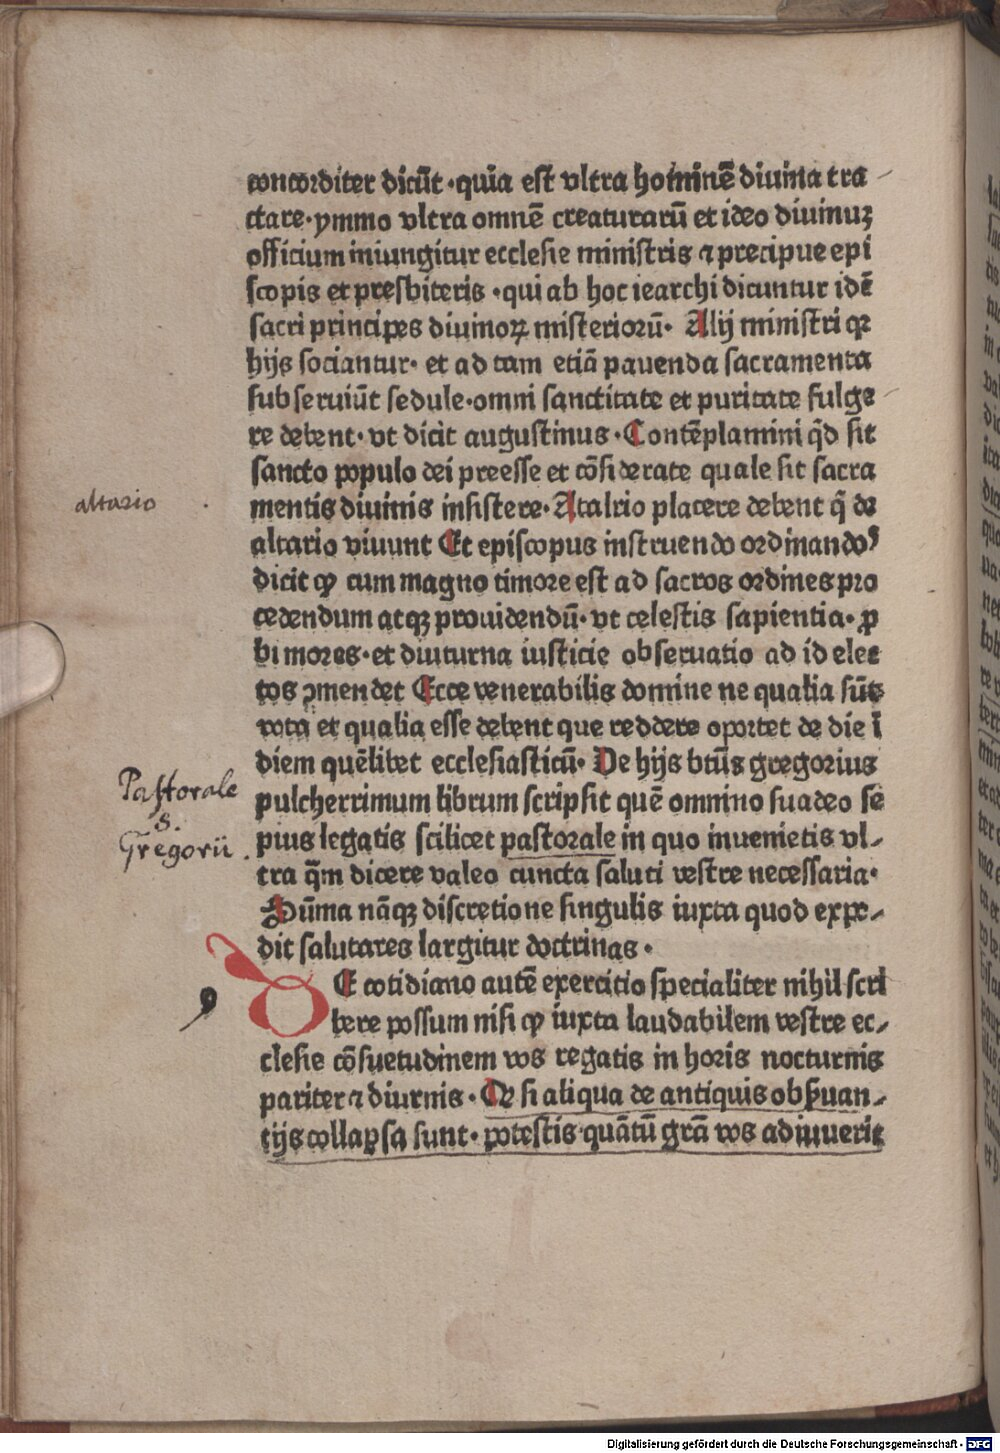 concorditer dicūt ·quia est vltra hominē diuina tra
ctare·ymmo vltra omnē creaturarū et ideo diuinuꝫ
officium iniungitur ecclesie ministris ⁊ precipue epi
scopis et presbiteris ·qui ab hoc iearchi dicuntur idē
sacri principes diuinoꝝ misteriorū· Alij ministri qꝛ
hijs sociantur· et ad tam etiā pauenda sacramenta
subseruiūt sedule·omni sanctitate et puritate fulge
re debent· vt dicit augustinus ·Contēplamini q̄d sit
sancto populo dei preesse et cōsiderate quale sit sacra
mentis diuinis insistere· Atalrio placere debent q̄ de
altario viuunt Et episcopus instruendo ordinandoꝰ
dicit ꝙ cum magno timore est ad sacros ordines pro
cedendum atqꝫ prouidendū· vt celestis sapientia· ꝓ
bi mores·et diuturna iusticie obseruatio ad id elec
tos ꝯmendet Ecce venerabilis domine ne qualia sūt
vota et qualia esse debent que reddere oportet de die ī
diem quēlibet ecclesiasticū· De hijs btūs gregorius
pulcherrimum librum scripsit quē omnino suadeo se
pius legatis scilicet pastorale in quo inuenietis vl-
tra q̄m dicere valeo cuncta saluti vestre necessaria·
Sūma nāqꝫ discretione singulis iuxta quod expe-
dit salutares largitur doctrinas ·
DE cotidiano autē exercitio specialiter nihil scri
bere possum nisi ꝙ iuxta laudabilem vestre ec-
clesie cōsuetudinem vos regatis in horis nocturnis
pariter ⁊ diurnis · Et si aliqua de antiquis obẜuan-
tijs collapsa sunt· potestis quātū grā vos adiuuerit
altario
Pastorale
S.
Gregorii
Digitalisierung gefördert durch die Deutsche Forschungsgemeinschaft - DFG